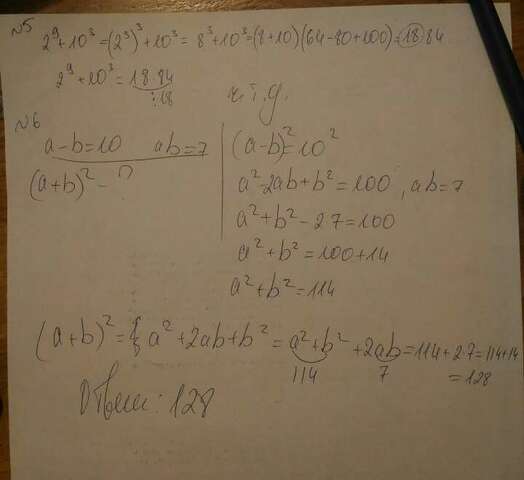 №5
2⁹+10³=(2³)³+10³=8³+10³=(8+10)(64-80+100)=18·84
2⁹+10³=18·84
:18
ч.т.д.
№6
a-b=10 ab=7
(a+b)²-?
(a-b)²=10²
a²-2ab+b²=100, ab=7
a²+b²-2·7=100
a²+b²=100+14
a²+b²=114
(a+b)²=a²+2ab+b²=a²+b²+2ab=114+2·7=114+14
114 7 =128
Ответ: 128